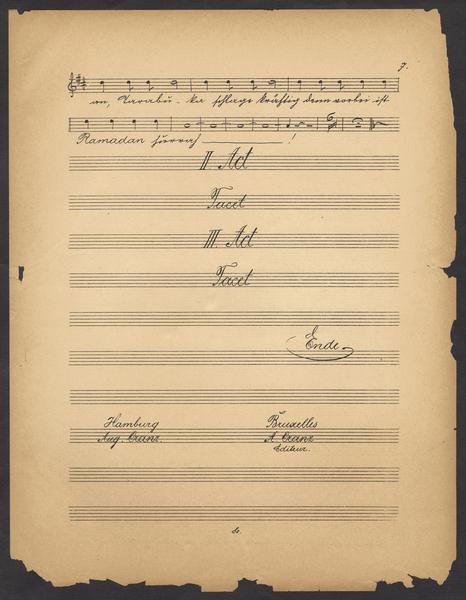 7.
an, Tarabu - ka schlage kräftig denn vorbei ist
Ramadan hurrah !
6
II Act
Tacet
III Act
Tacet
Ende
Hamburg Bruxelles
Aug. Cranz. A. Cranz
Editeur.